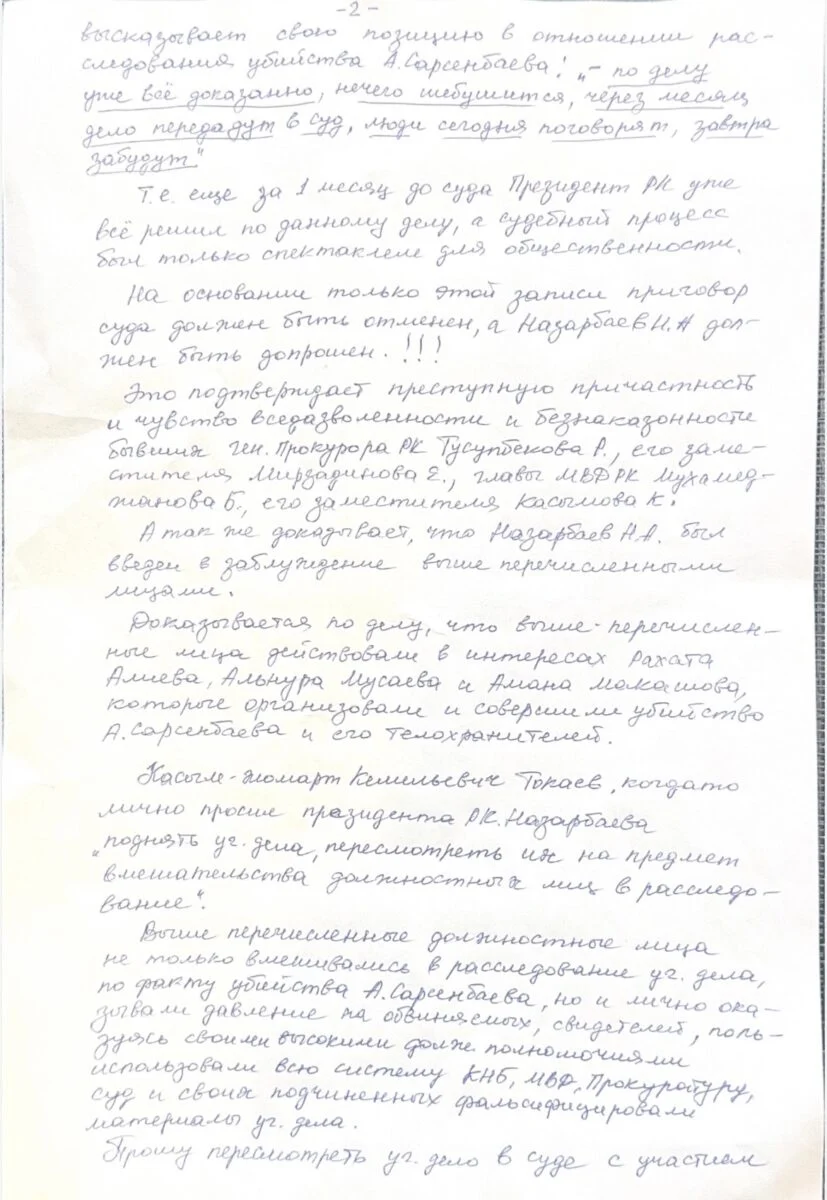 -2-
высказывает свою позицию в отношении рас-
следования убийства А.Сарсенбаева! „– по делу
уже всё доказанно, нечего шебушится, через месяц
дело передадут в суд, люди сегодня поговорят, завтра
забудут"
Т.е. еще за 1 месяц до суда Президент РК уже
всё решил по данному делу, а судебный процесс
был только спектаклем для общественности.
На основании только этой записи приговор
суда должен быть отменен, а Назарбаев Н.А дол-
жен быть допрошен. !!!
Это подтверждает преступную причастность
и чувство вседазволенности и безнаказоности
бывших ген. Прокурора РК Тусупбекова Р., его заме-
стителя Мирзадинова Е., главы МВД РК Мухамед-
жанова Б., его заместителя Касымова К.
А так же доказывает, что Назарбаев Н.А. был
введен в заблуждение выше перечисленными
лицами.
Доказывается по делу, что выше-перечислен-
ные лица действовали в интересах Рахата
Алиева, Альнура Мусаева и Амана Мокашова,
которые организовали и совершили убийство
А.Сарсенбаева и его телохранителей.
Касым-жомарт Кемельевич Токаев, когдато
лично просил президента РК. Назарбаева
„поднять уг. дела, пересмотреть их на предмет
вмешательства должностных лиц в расследо-
вание".
Выше перечисленные должностные лица
не только вмешивались в расследование уг. дела,
по факту убийства А.Сарсенбаева, но и лично ока-
зывали давление на обвиняемых, свидетелей, поль-
зуясь своими высокими долже полномочиями
использовали всю систему КНБ, МВД, Прокуратуру,
суд и своих подчиненных фальсифицировали
материалы уг. дела.
Прошу пересмотреть уг. дело в суде с участием